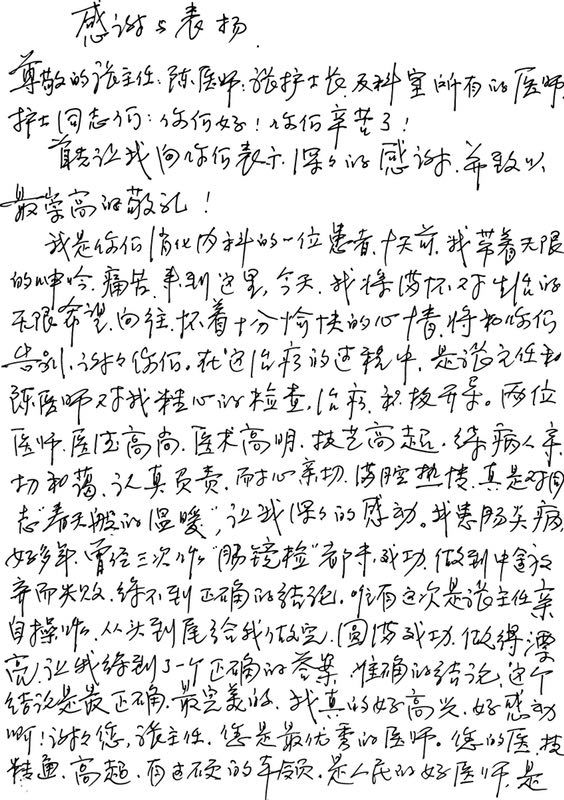 感谢与表扬
尊敬的张主任、陈医师、张护士长及科室所有的医师
护士同志们：你们好！你们辛苦了！
首先让我向你们表示深深的感谢，并致以
最崇高的敬礼！
我是你们消化内科的一位患者，十天前，我带着无限
的呻吟、痛苦，来到这里，今天，我将满怀对生活的
无限希望、向往，怀着十分愉快的心情，将和你们
告别，谢谢你们。在这治疗的过程中，是张主任和
陈医师对我精心的检查，治疗，积极开导。两位
医师，医德高尚，医术高明，技艺高超，待病人亲
切和蔼，认真负责，耐心亲切，满腔热情，真是对同
志“春天般的温暖”，让我深深的感动。我患肠炎病
好多年，曾经三次作“肠镜检”都未成功，做到中途放
弃而失败，得不到正确的结论，唯有这次是张主任亲
自操作，从头到尾给我做完，圆满成功，做得漂
亮，让我得到了一个正确的答案，准确的结论，这个
结论是最正确，最完美的，我真的好高兴，好感动
啊！谢谢您，张主任，您是最优秀的医师。您的医技
精通、高超，有过硬的本领，是人民的好医师，是